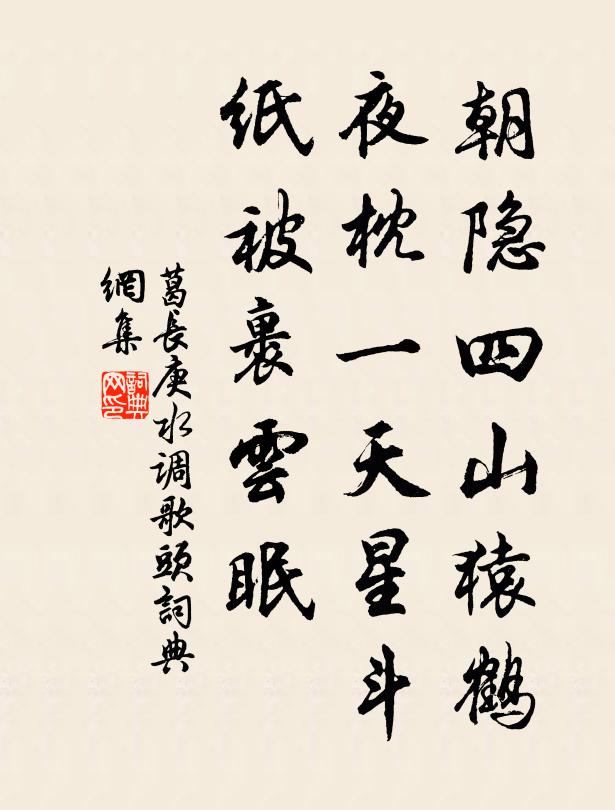 朝隐四山猿鹤
夜枕一天星斗
纸被裹雲眠
葛長庚水调歌頭詞典
網集
詞典
网印